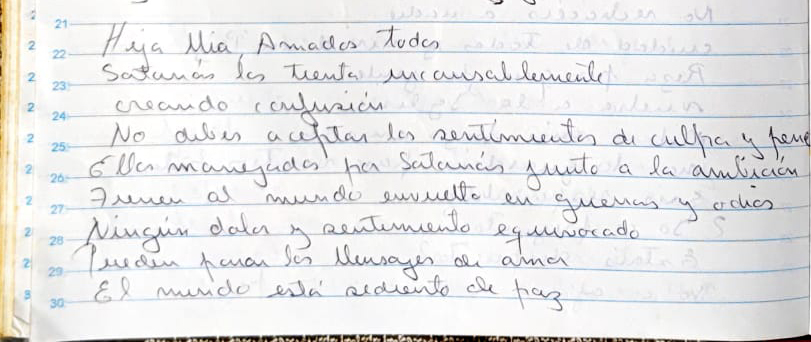 21 Hija Mia, Amados todos
22 Satanás los tienta incansablemente
23 creando confusión
24 No debes aceptar los sentimientos de culpa y pena
25 Ellos manejados por Satanás junto a la ambición
26 Tienen al mundo envuelto en guerras y odios
27 Ningún dolor y sentimiento equivocado
28 Pueden parar los Mensajes de amor
29 El mundo está sediento de paz
30